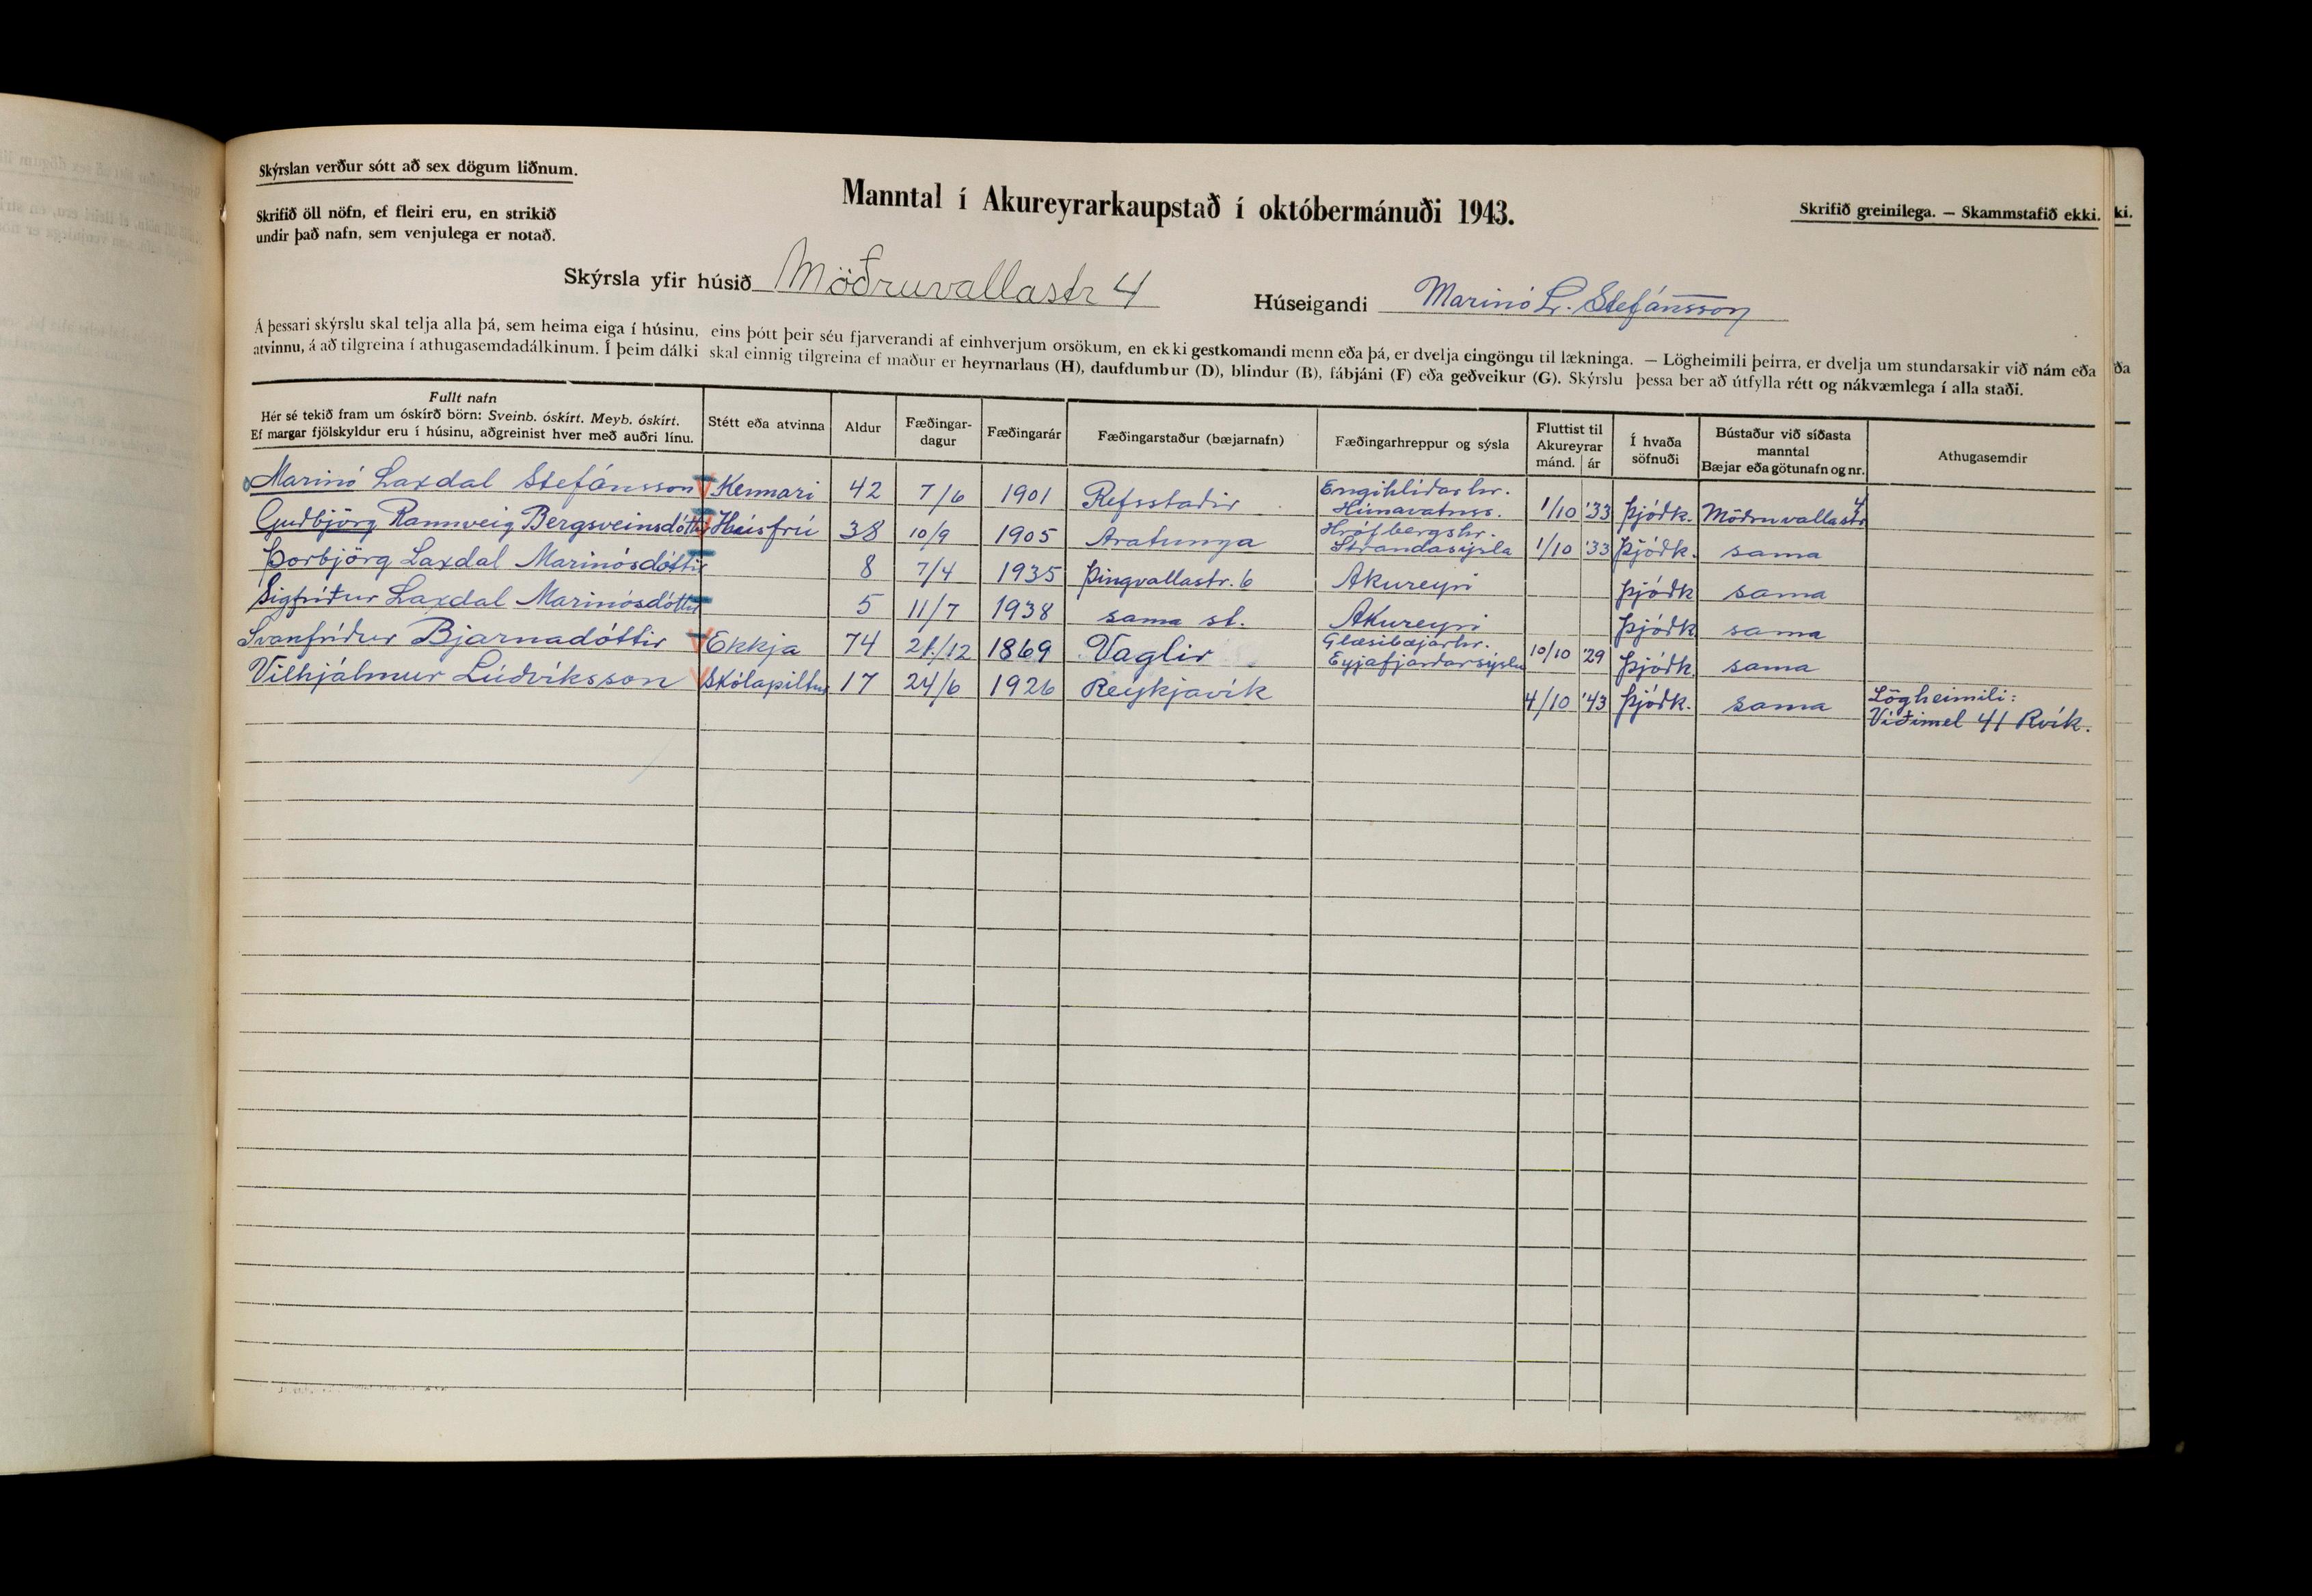 Skýrslan verður sótt að sex dögum liðnum.
Skrifið öll nöfn, ef fleiri eru, en strikið
undir það nafn, sem venjulega er notað.
Manntal í Akureyrarkaupstað í októbermánuði 1943.
Skrifið greinilega. — Skammstafið ekki.
ki.
Skýrsla yfir húsið Möðruvallastr 4
Húseigandi Marinó L. Stefánsson
Á þessari skýrslu skal telja alla þá, sem heima eiga í húsinu, eins þótt þeir séu fjarverandi af einhverjum orsökum, en ekki gestkomandi menn eða þá, er dvelja eingöngu til lækninga. — Lögheimili þeirra, er dvelja um stundarsakir við nám eða
ða
atvinnu, á að tilgreina í athugasemdadálkinum. Í þeim dálki skal einnig tilgreina ef maður er heyrnarlaus (H), daufdumbur (D), blindur (B), fábjáni (F) eða geðveikur (G). Skýrslu þessa ber að útfylla rétt og nákvæmlega í alla staði.
Fullt nafn
Hér sé tekið fram um óskírð börn: Sveinb. óskírt. Meyb. óskírt.
Ef margar fjölskyldur eru í húsinu, aðgreinist hver með auðri línu.
Stétt eða atvinna
Aldur
Fæðingar-
dagur
Fæðingarár
Fæðingarstaður (bæjarnafn)
Fæðingarhreppur og sýsla
Fluttist til
Akureyrar
mánd. ár
Í hvaða
söfnuði
Bústaður við síðasta
manntal
Bæjar eða götunafn og nr.
Athugasemdir
Marinó Laxdal Stefánsson Kennari 42 7/6 1901 Refsstaðir Engihlíðarhr. Húnavatnss. 1/10 '33 Þjóðk. Möðruvallastr 4
Guðbjörg Rannveig Bergsveinsdóttir Húsfrú 38 10/9 1905 Aratunga Hrófbergshr. Strandasýsla 1/10 '33 Þjóðk. sama
Þorbjörg Laxdal Marinósdóttir 8 7/4 1935 Þingvallastr. 6 Akureyri Þjóðk sama
Sigfríður Laxdal Marinósdóttir 5 11/7 1938 sama st. Akureyri Þjóðk sama
Svanfríður Bjarnadóttir Ekkja 74 21./12 1869 Vaglir Glæsibæjarhr. Eyjafjarðarsýslu 10/10 '29 Þjóðk. sama
Vilhjálmur Lúdvíksson Skólapiltur 17 24/6 1926 Reykjavík 4/10 '43 Þjóðk. sama Lögheimili:
Víðimel 41 Rvík.